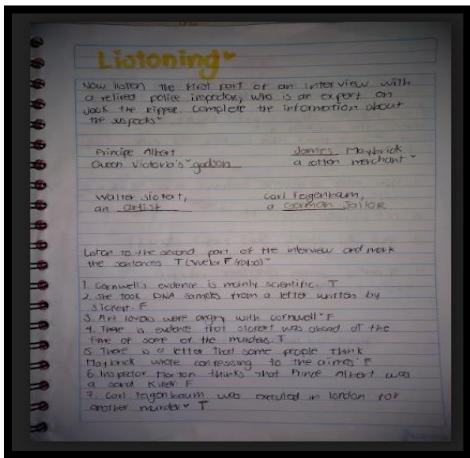 Listening
Now listen the first part of an interview with
a retired police inspector, who is an expert on
Jack the ripper. Complete the information about
the suspects"
Principe Albert
James Maybrick
Queen Victoria's "godson
a cotton merchant"
Walter Sickert,
Carl Feigenbaum,
an artist
a German Sailor
Listen to the second part of the interview and mark
the sentences T (true) or F (false)"
1. Cornwell's evidence is mainly scientific. T
2. She took DNA samples from a letter written by
Sickert. F
3. Art lovers were angry with Cornwell" F
4. There is evidence that Sickert was abroad at the
time of some of the murders. T
5. There is a letter that some people think
Maybrick wrote confessing to the crimes" F
6. Inspector Morton thinks that Prince Albert was
a serial killer. F
7. Carl Feigenbaum was executed in london for
another murder" T